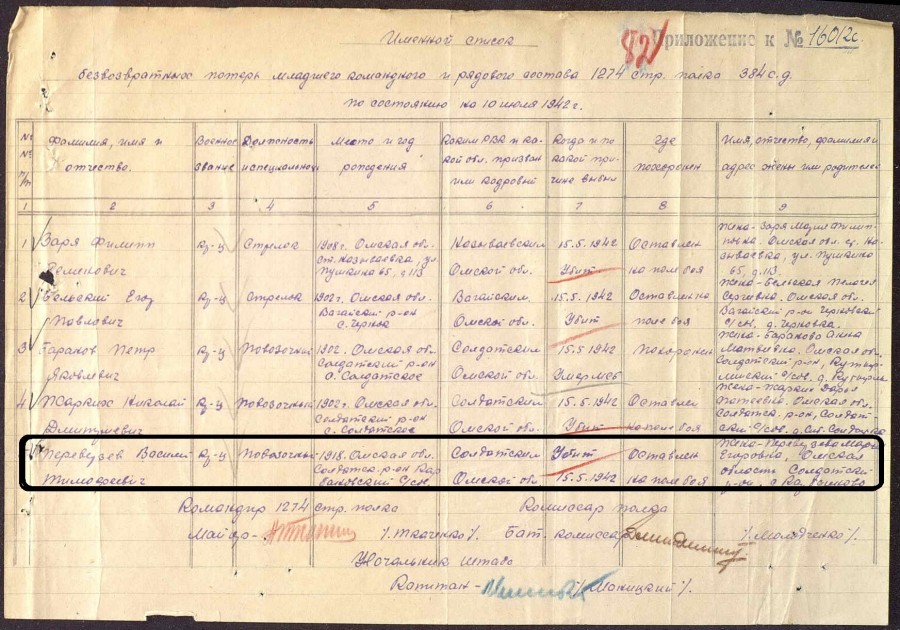 Именной список
82
Приложение к № 16012с.
безвозвратных потерь младшего командного и рядового состава 1274 стр. полка 384 с.д.
по состоянию на 10 июля 1942 г.
№ № п/п
Фамилия, имя и отчество.
Военное звание
Должность и специальность
Место и год рождения
Каким РВК и какой обл. призван или кадровый
Когда и по какой причине выбыл
Где похоронен
Имя, отчество, фамилия и адрес жены или родителей
1 2 3 4 5 6 7 8 9
1 Заря Филипп Семенович
Кр-ц
Стрелок
1908 г. Омская обл. ст. Называевка, ул. Пушкина 65, д. 113
Называевским Омской обл.
15.5.1942 Убит
Оставлен на поле боя
Жена-Заря Мария Филипповна. Омская обл. ст. Называевка, ул. Пушкина 65, д. 113.
2 Бельский Егор Павлович
Кр-ц
Стрелок
1902 г. Омская обл. Вагайский р-он с. Черное
Вагайским Омской обл.
15.5.1942 Убит
Оставлен на поле боя
Жена-Бельская Пелагея Сергеевна. Омская обл. Вагайский р-он Черновский с/сов. д. Черновка.
3 Баранов Петр Яковлевич
Кр-ц
Повозочный
1902 г. Омская обл. Солдатский р-он с. Солдатское
Солдатским Омской обл.
15.5.1942 Умер
Похоронен
Жена-Баранова Анна Матвеевна. Омская обл. Солдатский р-он, с/сов.
4 Жарких Николай Дмитриевич
Кр-ц
Повозочный
1902 г. Омская обл. Солдатский р-он с. Солдатское
Солдатским Омской обл.
15.5.1942 Убит
Оставлен на поле боя
Жена-Жарких Омская обл. Солдатск. р-он, Солдатский с/сов.
Перевузев Василий Тимофеевич
Кр-ц
Повозочный
1918. Омская обл. Солдатск. р-он с/сов.
Солдатским Омской обл
Убит 15.5.1942
Оставлен на поле боя
Жена-Перевузева Егоровна, Омская область Солдатский р-он
Командир 1274 стр. полка
Комиссар полка
Майор- /Ткаченко/.
Бат. комиссар /Молодченко/
Начальник штаба
Капитан- /Маницкий/.